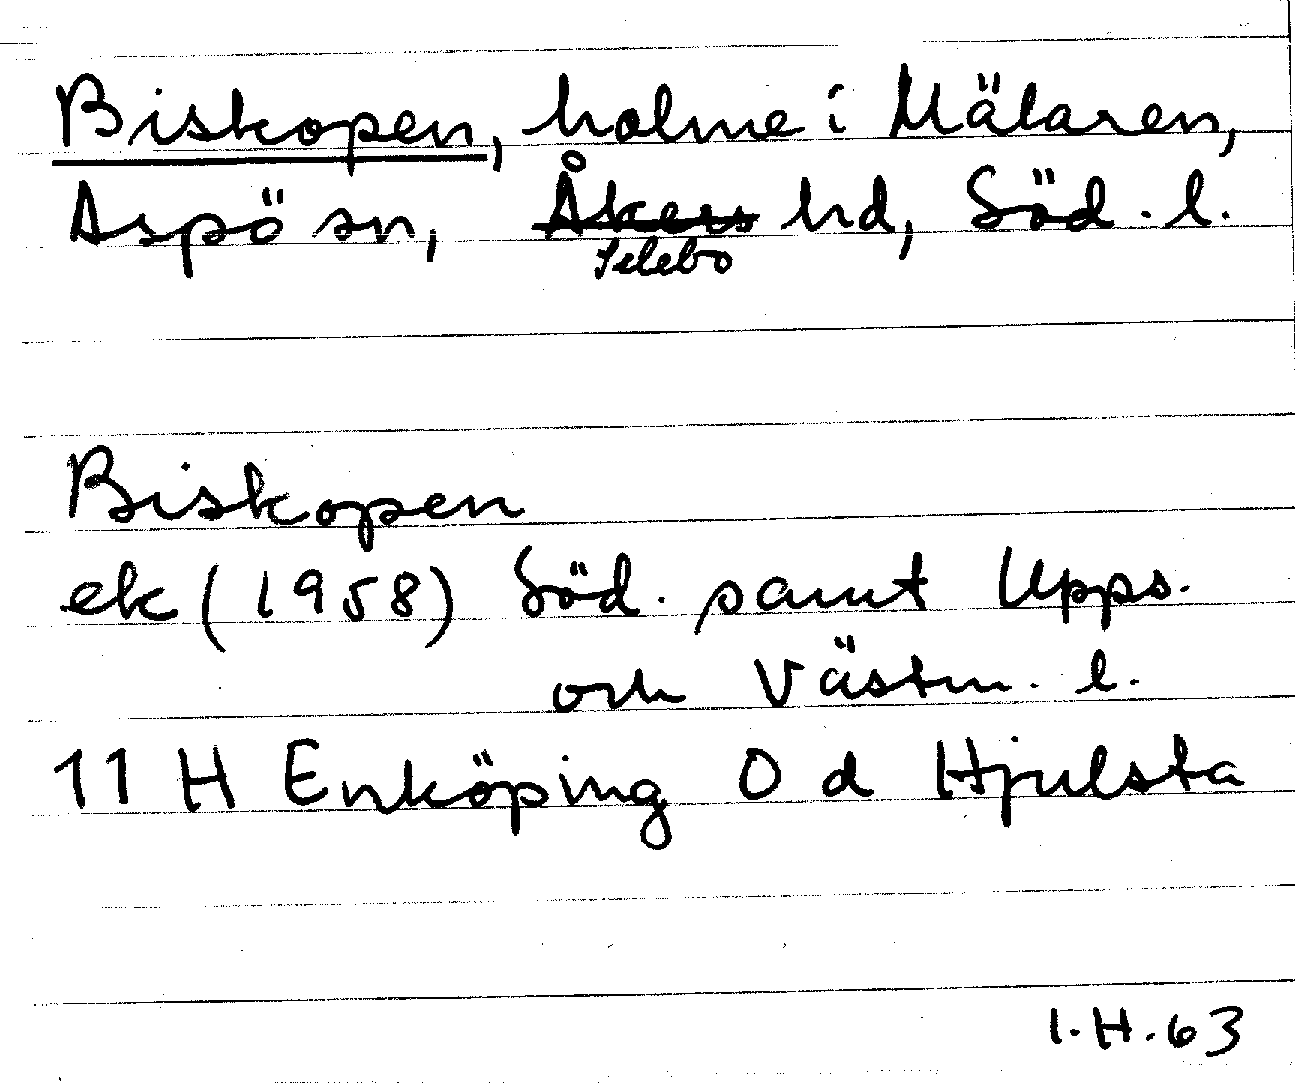 Biskopen, holme i Mälaren,
Aspö sn, Åkers hd, Söd. l.
Selebo
Biskopen
ek (1958) Söd. samt Upps.
och Västm. l.
11 H Enköping 0 d Hjulsta
I.H.63